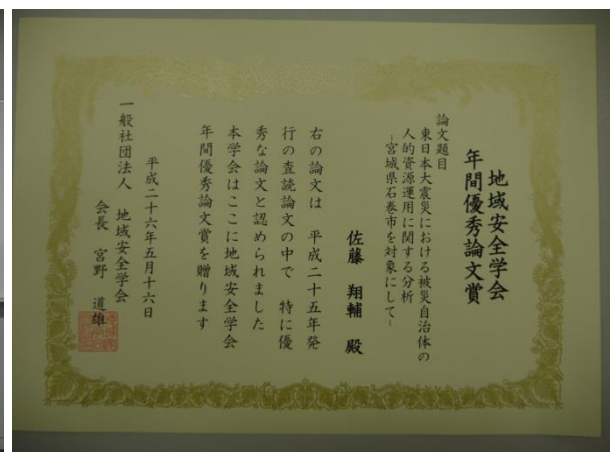 地域安全学会
年間優秀論文賞
論文題目
東日本大震災における被災自治体の
人的資源運用に関する分析
－宮城県石巻市を対象にして－
佐藤 翔輔 殿
右の論文は 平成二十五年発
行の査読論文の中で 特に優
秀な論文と認められました
本学会はここに地域安全学会
年間優秀論文賞を贈ります
平成二十六年五月十六日
一般社団法人 地域安全学会
会長 宮野 道雄